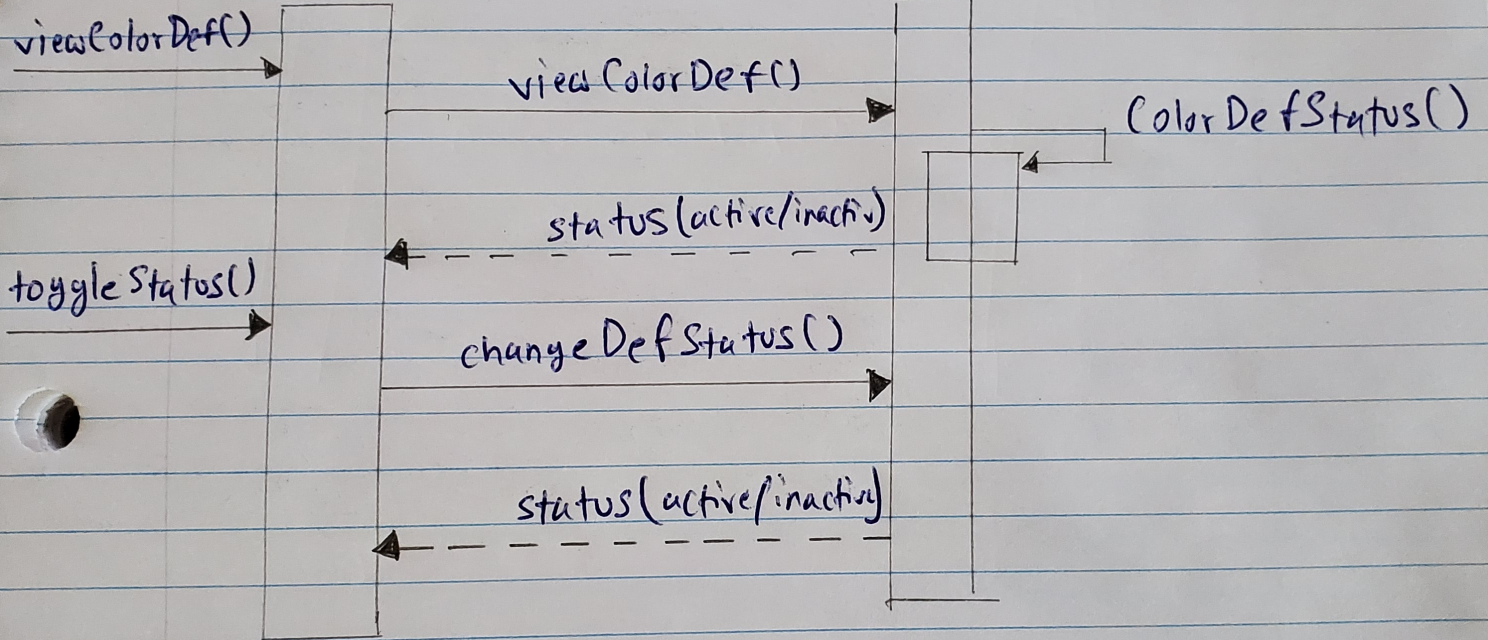 viewColorDef()
viewColorDef()
ColorDefStatus()
status(active/inactiv)
toggleStatus()
changeDefStatus()
status(active/inactive)